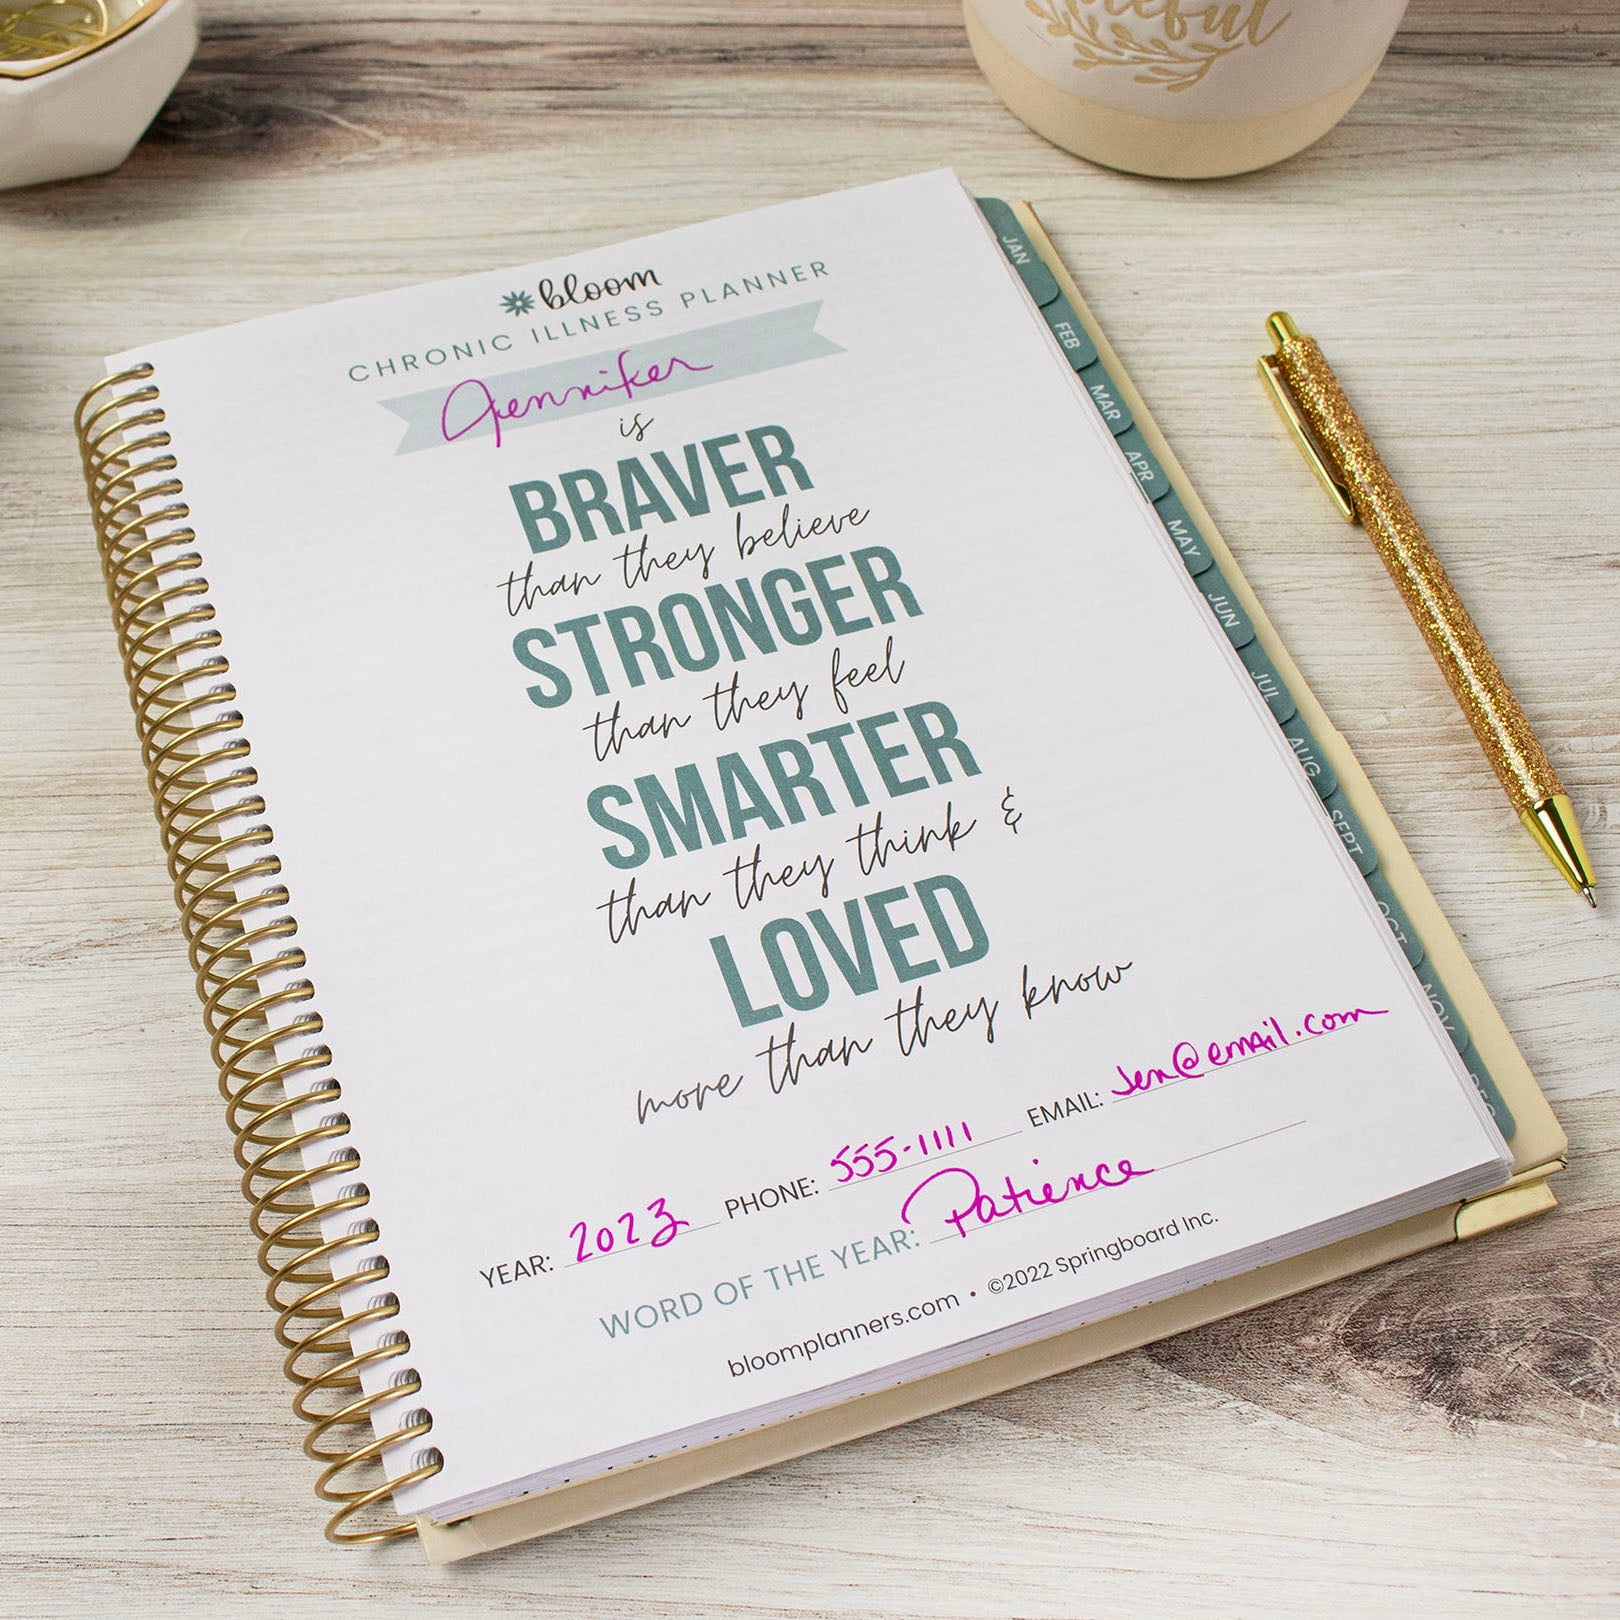 bloom
CHRONIC ILLNESS PLANNER
Jennifer
is
BRAVER
than they believe
STRONGER
than they feel
SMARTER
than they think &
LOVED
more than they know
YEAR: 2023 PHONE: 555-1111 EMAIL: Jen@email.com
WORD OF THE YEAR: Patience
bloomplanners.com • ©2022 Springboard Inc.
JAN
FEB
MAR
APR
MAY
JUN
JUL
AUG
SEPT
OCT
NOV
DEC